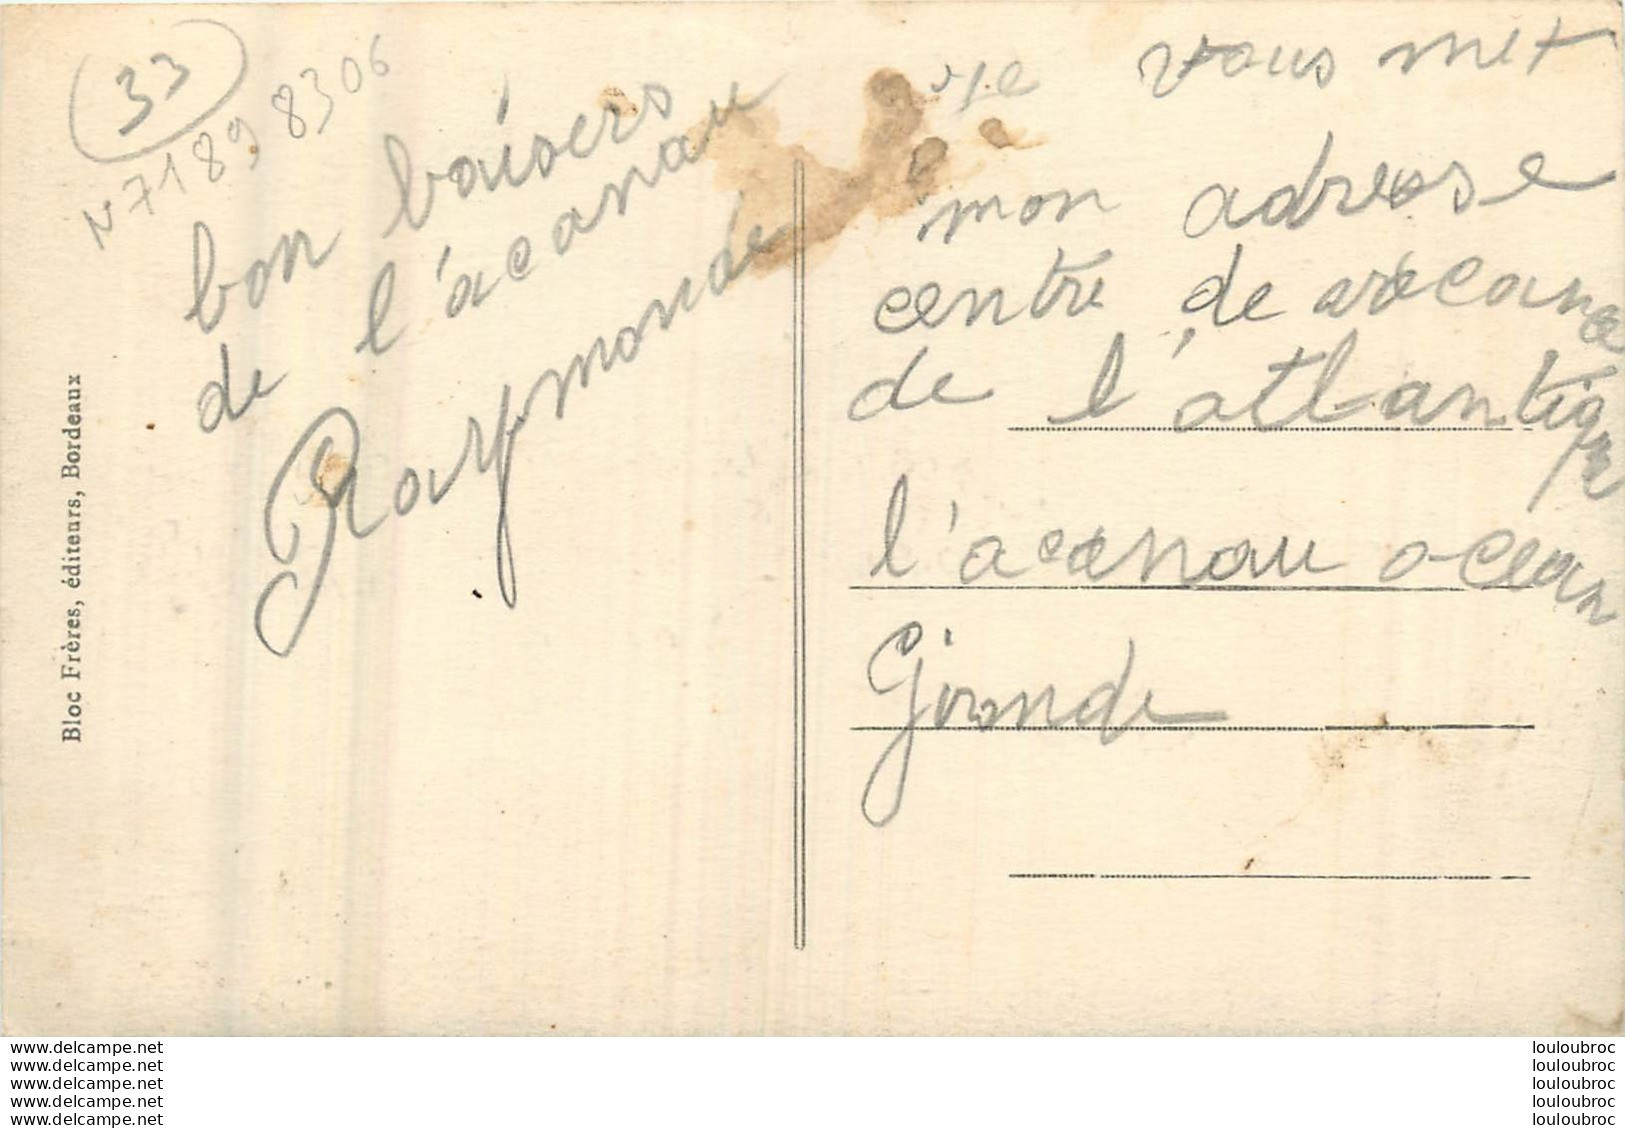 33
N7189 8306
bon baisers
de l'acanau
Raymonde
Bloc Frères, éditeurs, Bordeaux
je vous met
mon adresse
centre de vacance
de l'atlantique
l'acanau océan
Gironde
www.delcampe.net
www.delcampe.net
www.delcampe.net
www.delcampe.net
www.delcampe.net
louloubroc
louloubroc
louloubroc
louloubroc
louloubroc